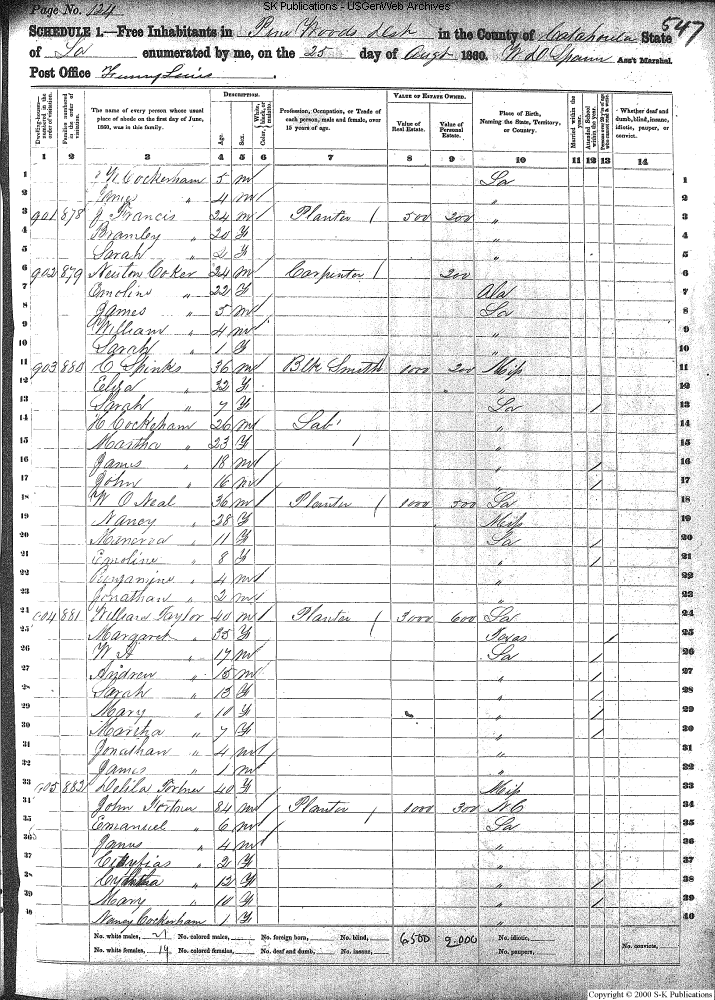 SK Publications - USGenWeb Archives
Page No. 124
547
SCHEDULE 1.—Free Inhabitants in Piney Woods Dist in the County of Catahoula State
of La enumerated by me, on the 25 day of Augt 1860. W D Spann Ass't Marshal.
Post Office Funny Louis
DESCRIPTION.
VALUE OF ESTATE OWNED.
Dwelling-houses—numbered in the order of visitation.
Families numbered in the order of visitation.
The name of every person whose usual place of abode on the first day of June, 1860, was in this family.
Age.
Sex.
Color, White, black, or mulatto.
Profession, Occupation, or Trade of each person, male and female, over 15 years of age.
Value of Real Estate.
Value of Personal Estate.
Place of Birth, Naming the State, Territory, or Country.
Married within the year.
Attended School within the year.
Whether deaf and dumb, blind, insane, idiotic, pauper, or convict.
1 2 3 4 5 6 7 8 9 10 11 12 13 14
1 Cockerham 5 m La 1
2 " 4 m " 2
3 901 878 J Francis 24 m Planter 500 200 " 3
4 Bramley " 20 f " 4
5 Sarah " 2 f " 5
6 902 879 Newton Coker 24 m Carpenter 200 " 6
7 Emoline " 22 f Ala 7
8 James " 5 m La 8
9 William " 4 m " 9
10 Sarah " 1 f " 10
11 903 880 C Spinks 36 m Blk Smith 1000 200 Miss 11
12 Eliza " 32 f " 12
13 Sarah " 7 f La / 13
14 H Cockerham 26 m Lab " 14
15 Martha " 23 f " 15
16 James " 18 m " / 16
17 John " 16 m " / 17
18 W O Neal 36 m Planter 1000 500 La 18
19 Nancy " 28 f Miss 19
20 Minerva " 11 f La / 20
21 Emoline " 8 f " / 21
22 Benjamine " 4 m " 22
23 Jonathan " 2 m " 23
24 904 881 William Taylor 40 m Planter 3000 600 La 24
25 Margaret " 35 f Texas / 25
26 W H " 17 m La / 26
27 Andrew " 15 m " / 27
28 Sarah " 13 f " / 28
29 Mary " 10 f " / 29
30 Martha " 7 f " / 30
31 Jonathan " 4 m " 31
32 James " 1 m " 32
33 905 882 Delila Fortner 40 f Miss 33
34 John Fortner 84 m Planter 1000 300 NC 34
35 Emanuel " 6 m La 35
36 " 4 m " 36
37 " 2 f " 37
38 " 12 f " / 38
39 Mary " 10 f " / 39
40 Nancy Cockerham 1 f " 40
No. white males, 21 No. colored males, No. foreign born, No. blind, 6500 2.000 No. idiotic,
No. white females, 19 No. colored females, No. deaf and dumb, No. insane, No. paupers, No. convicts,
Copyright © 2000 S-K Publications